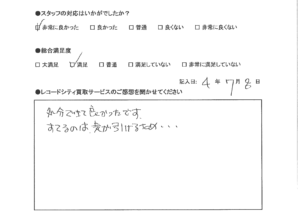 ●スタッフの対応はいかがでしたか?
☑非常に良かった □良かった □普通 □良くない □非常に良くない
●総合満足度
□大満足 ☑満足 □普通 □満足していない □非常に満足していない
記入日: 4年 7月 8日
●レコードシティ買取サービスのご感想を聞かせてください
処分できて良かったです。
すてるのは気が引けるため・・・